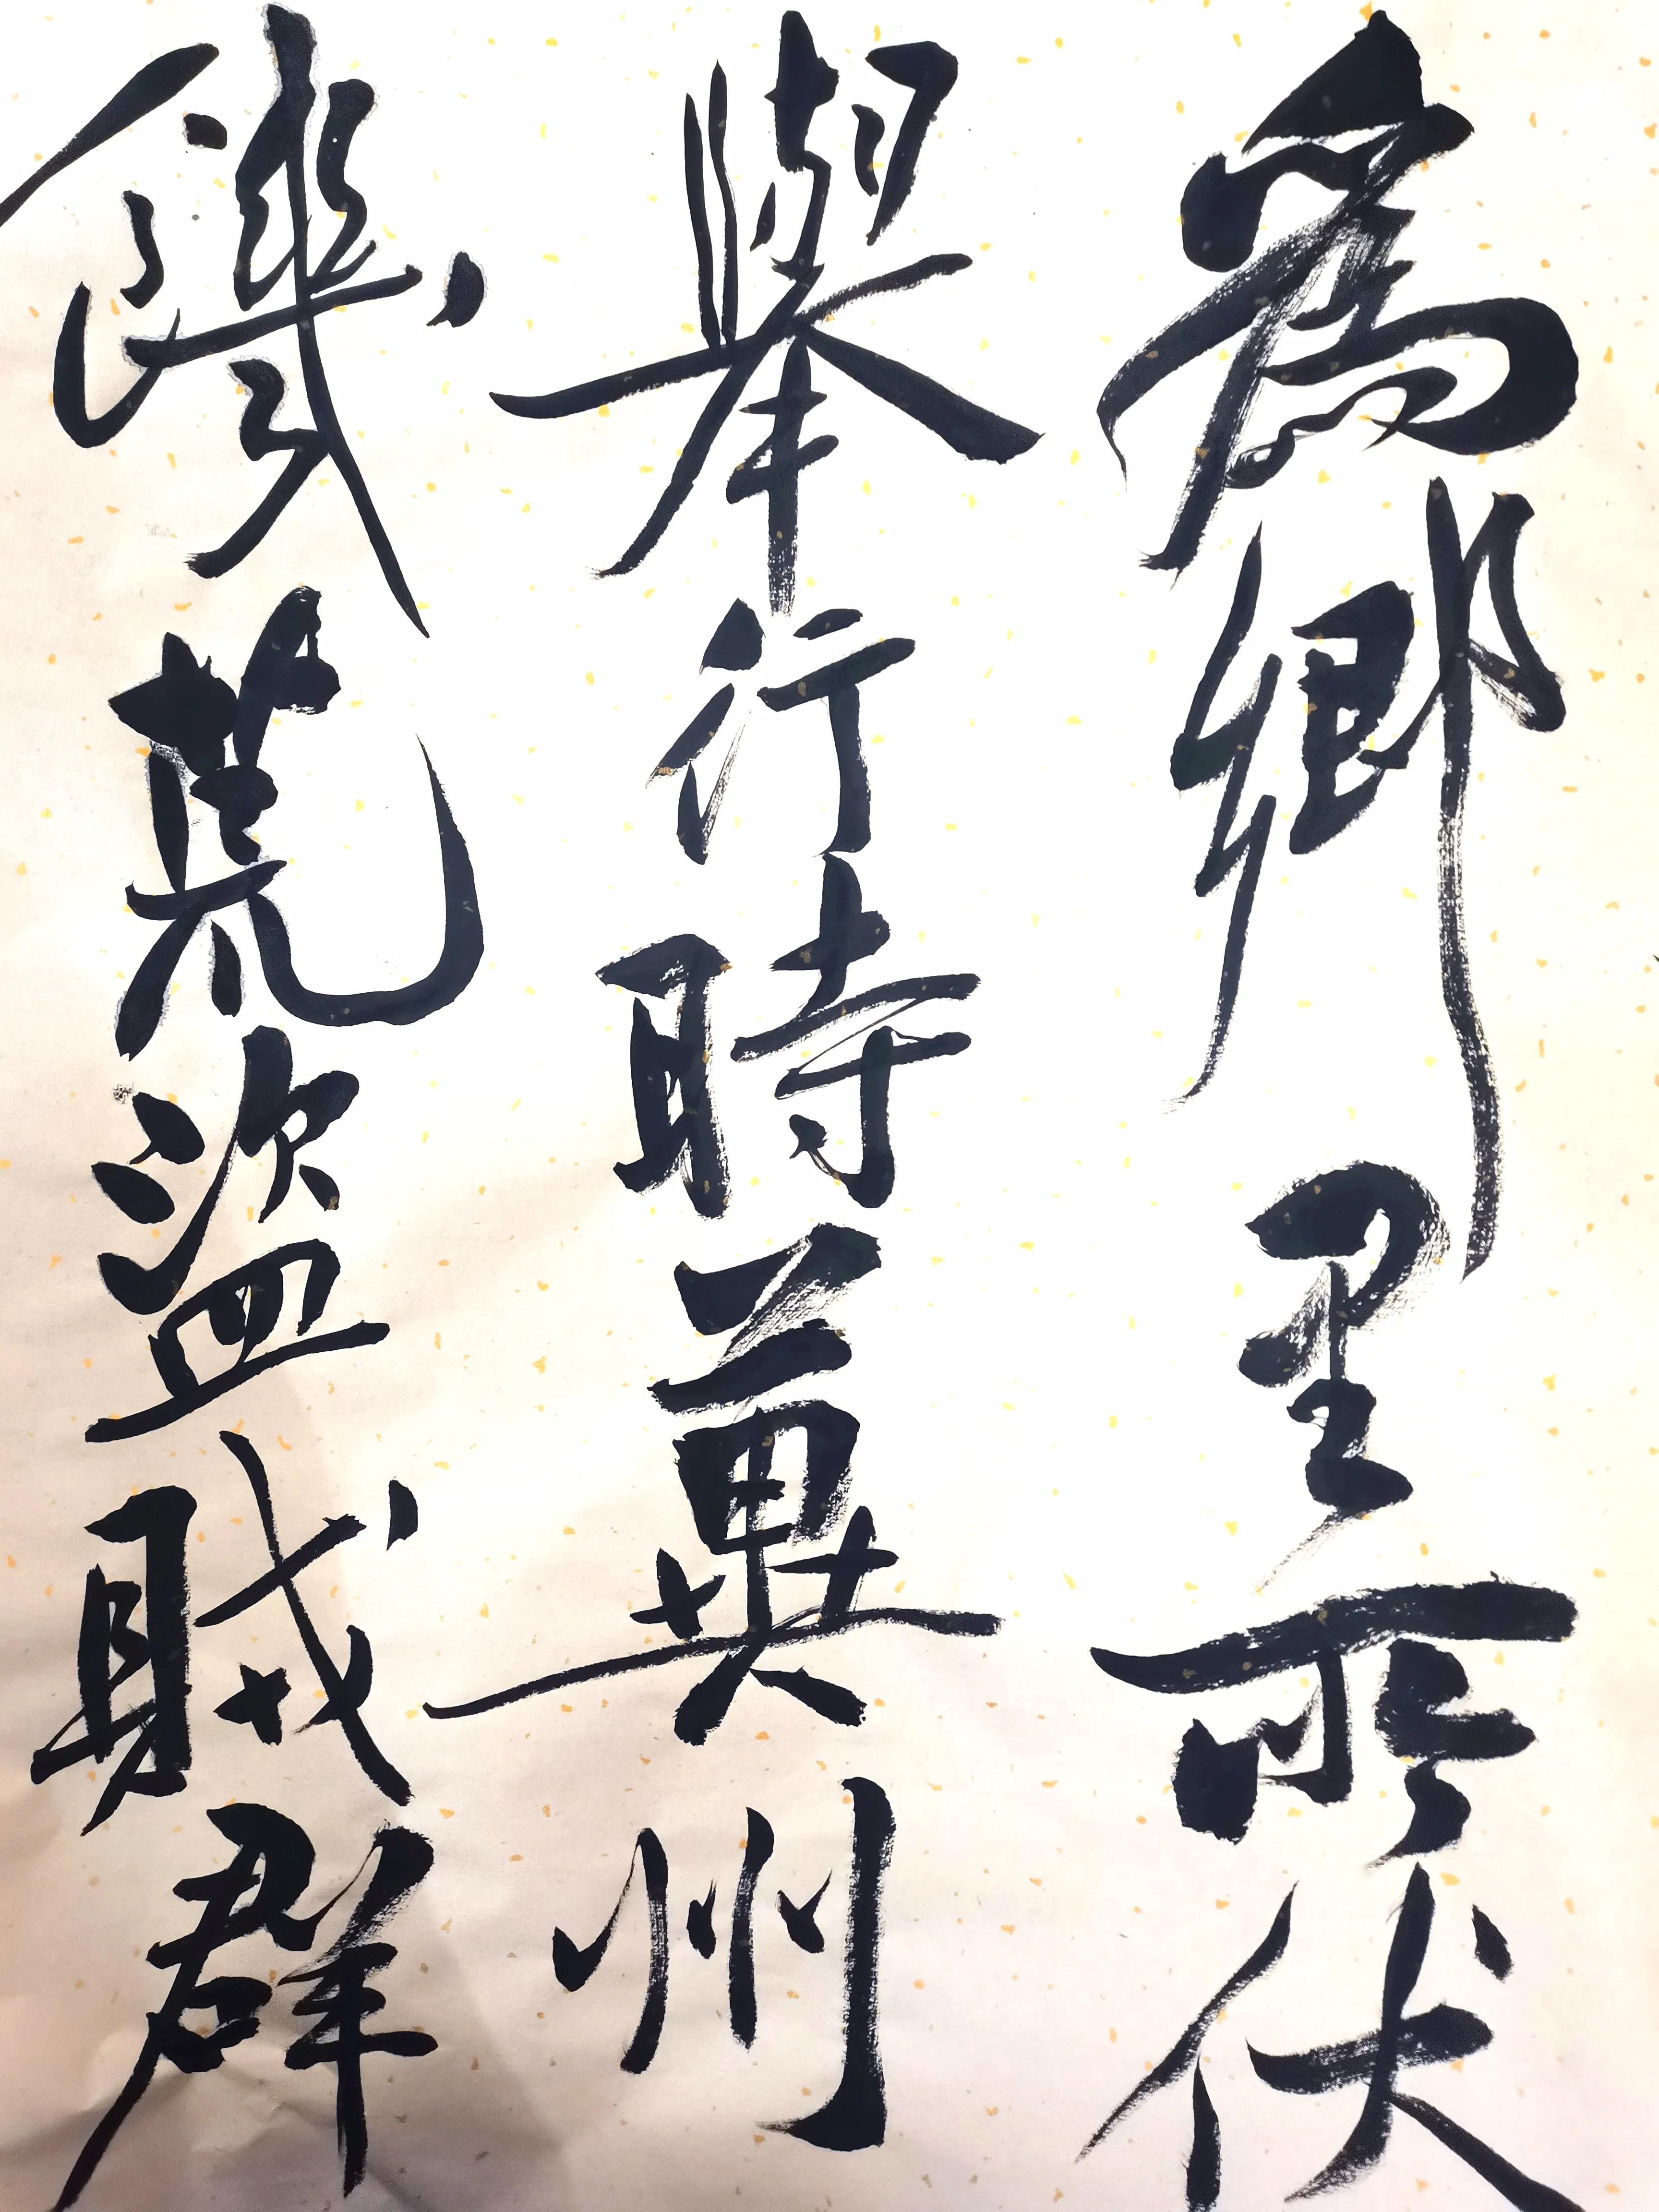 為鄉里所伏
舉行時冀州
饑荒盜賊群